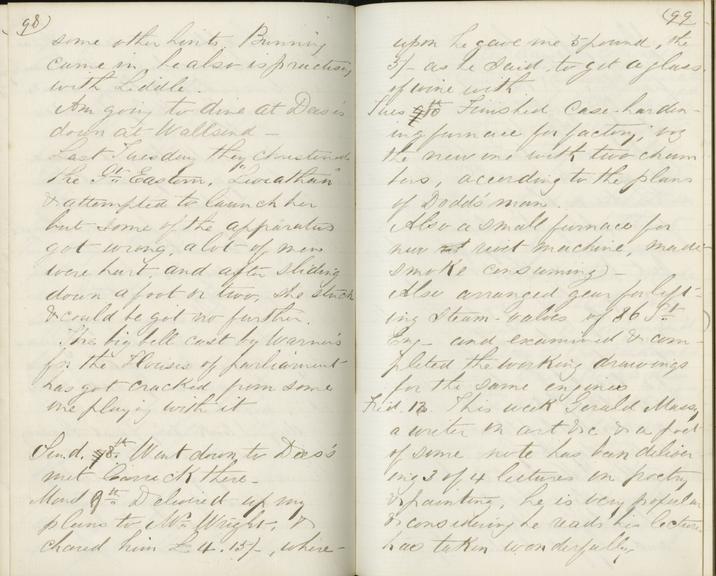 98)
some other hints, Binning
came in, he also is practising
with Liddle.
Am going to dine at Dees's
down at Wallsend —
Last Tuesday they christened
the Gt. Eastern, "Leviathan"
& attempted to launch her
but some of the apparatus
got wrong, a lot of men
were hurt, and after sliding
down a foot or two, she stuck
& could be got no further.
The big bell cast by Warners
for the Houses of parliament
has got cracked from some
one playing with it
Sund. 8th. Went down to Dees's
met there —
Mond 9th Delivered up my
plans to Mr. Wright, &
chared him £4.15/-, where-
(99
upon he gave me 5 pound, the
5/- as he said to get a glass
of wine with.
Tues 10th Finished Case-harden-
ing furnace for factory, viz
the new one with two cham
bers, according to the plans
of Dodds' man.
Also a small furnace for
new rivet machine, made
smoke consuming) —
Also arranged gear for lift-
ing Steam-Valves of 86 St.
Eng — and examined & com-
pleted the working drawings
for the same engines
Frid. 13. This week Gerald Massey
a writer on art &c & a poet
of some note has been deliver
ing 3 of 4 lectures on poetry
& painting, he is very popular
& considering he reads his lectures
has taken wonderfully